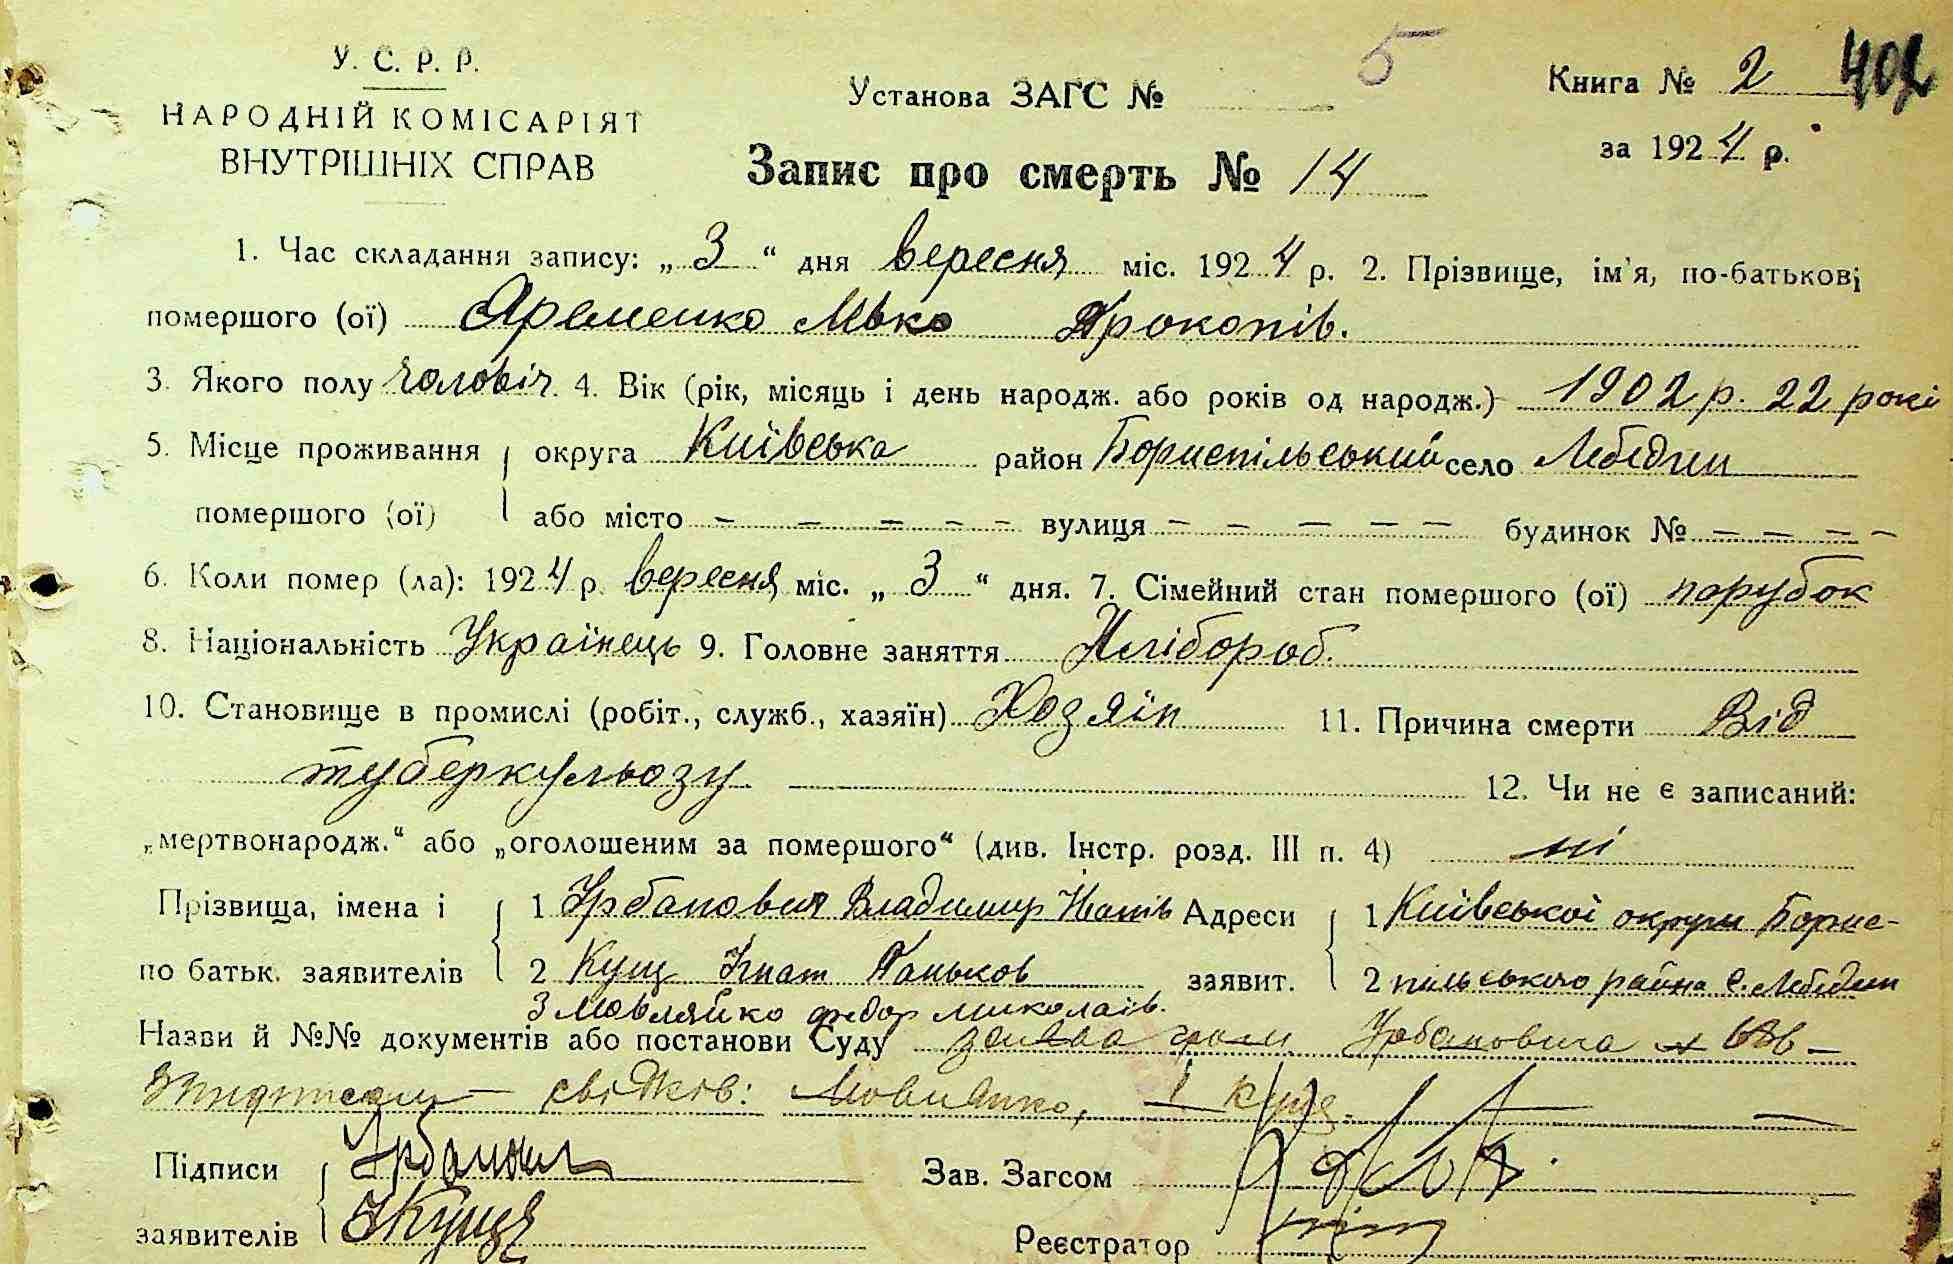 У. С. Р. Р.
НАРОДНІЙ КОМІСАРІЯТ
ВНУТРІШНІХ СПРАВ
5
Установа ЗАГС №
Книга № 2 402
за 1924 р.
Запис про смерть № 14
1. Час складання запису: „ 3 “ дня вересня міс. 1924 р. 2. Прізвище, ім'я, по-батькові
помершого (ої) Яременко Мько Прокопів.
3. Якого полу чоловіч. 4. Вік (рік, місяць і день народж. або років од народж.) 1902 р. 22 рокі
5. Місце проживання округа Київська район Бориспільський село Лебедин
помершого (ої) або місто – – – – – вулиця – – – – – будинок № – – – –
6. Коли помер (ла): 1924 р. вересня міс. „ 3 “ дня. 7. Сімейний стан помершого (ої) парубок
8. Національність Українець 9. Головне заняття Хлібороб.
10. Становище в промислі (робіт., служб., хазяїн) Хозяїн 11. Причина смерти Від
туберкульозу 12. Чи не є записаний:
„мертвонародж.“ або „оголошеним за помершого“ (див. Інстр. розд. III п. 4) ні
Прізвища, імена і 1 Урбанович Владимир Іванів Адреси 1 Київської округи Борис-
по батьк. заявителів 2 Кущ Гнат Паньков заявит. 2 пільського района с. Лебедин
3 Мовляйко Федор Миколаїв.
Назви й №№ документів або постанови Суду заява гром. Урбановича
свідків: і Куща.
Підписи Урбанович Зав. Загсом
заявителів Кущ Реєстратор